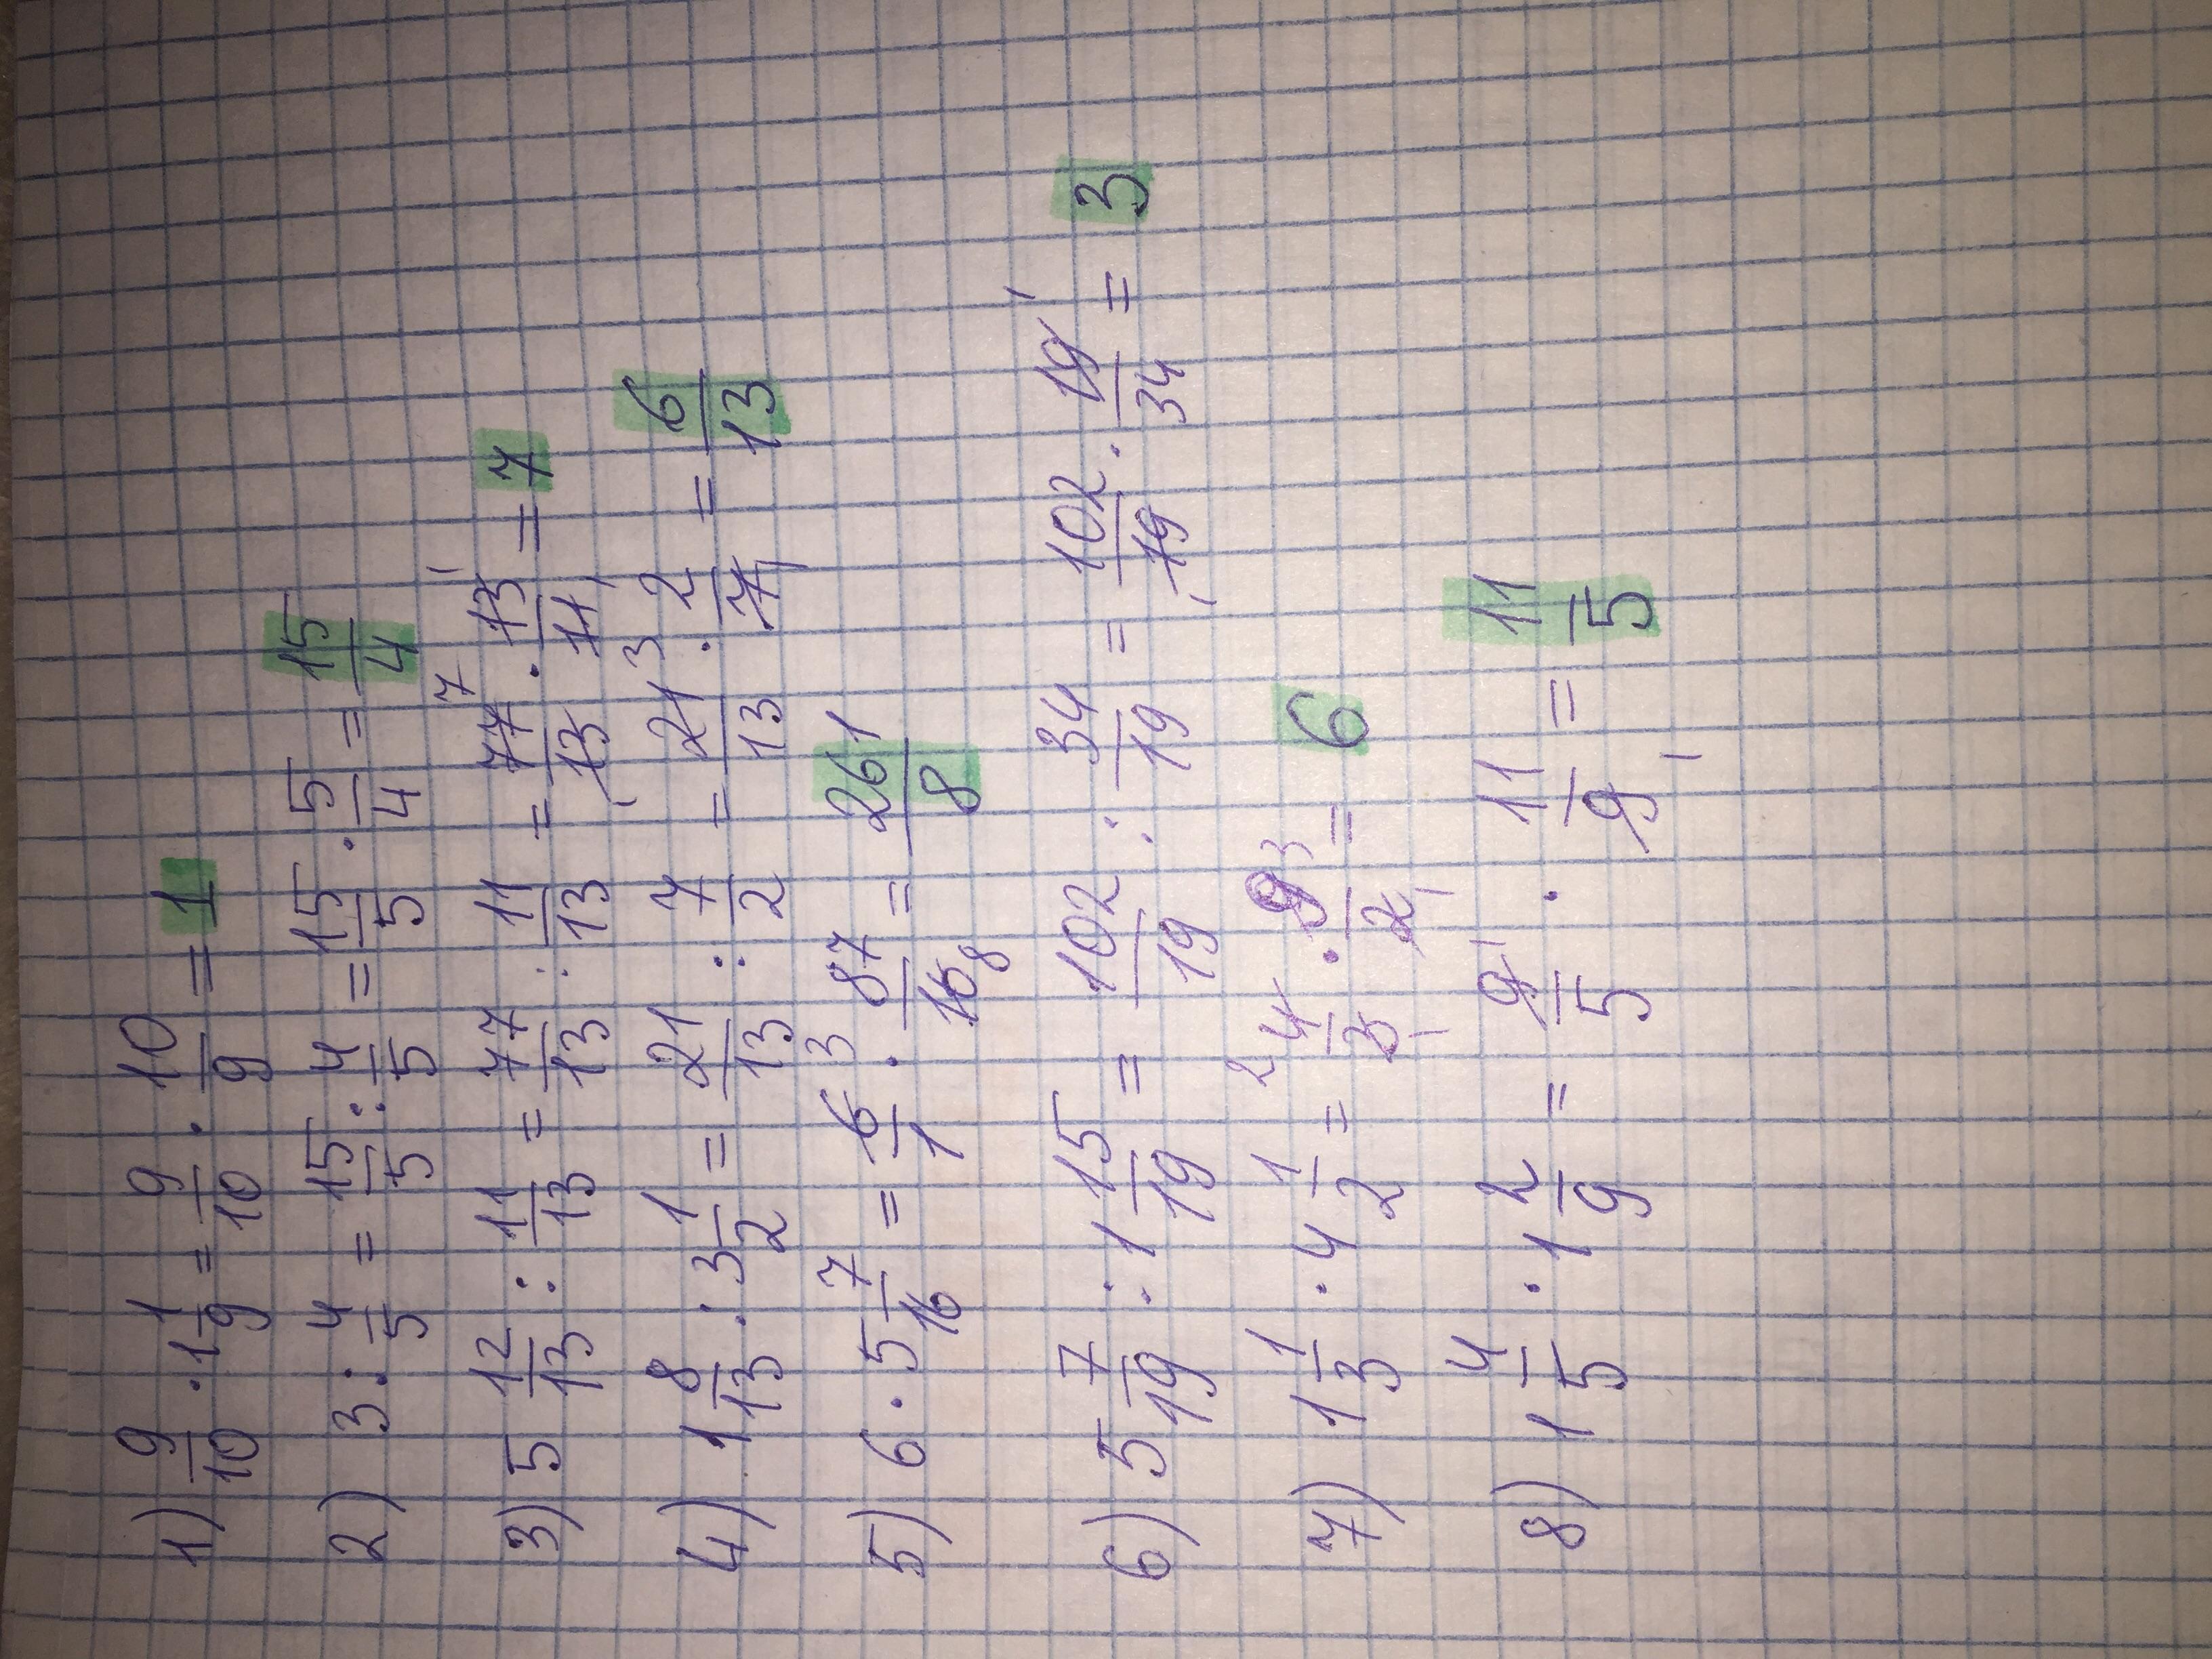 1) 9/10 · 1 1/9 = 9/10 · 10/9 = 1
2) 3 : 4/5 = 15/5 : 4/5 = 15/5 · 5/4 = 15/4
3) 5 12/13 : 11/13 = 77/13 : 11/13 = 77 7/13 1 · 13 1/11 1 = 7
4) 1 8/13 : 3 1/2 = 21/13 : 7/2 = 21 3/13 · 2/7 1 = 6/13
5) 6 · 5 7/16 = 6 3/1 · 87/16 8 = 261/8
6) 5 7/19 : 1 15/19 = 102/19 : 34/19 = 102/19 1 · 19 1/34 = 3
7) 1 1/3 · 4 1/2 = 4 2/3 1 · 9 3/2 1 = 6
8) 1 4/5 · 1 2/9 = 9 1/5 · 11/9 1 = 11/5